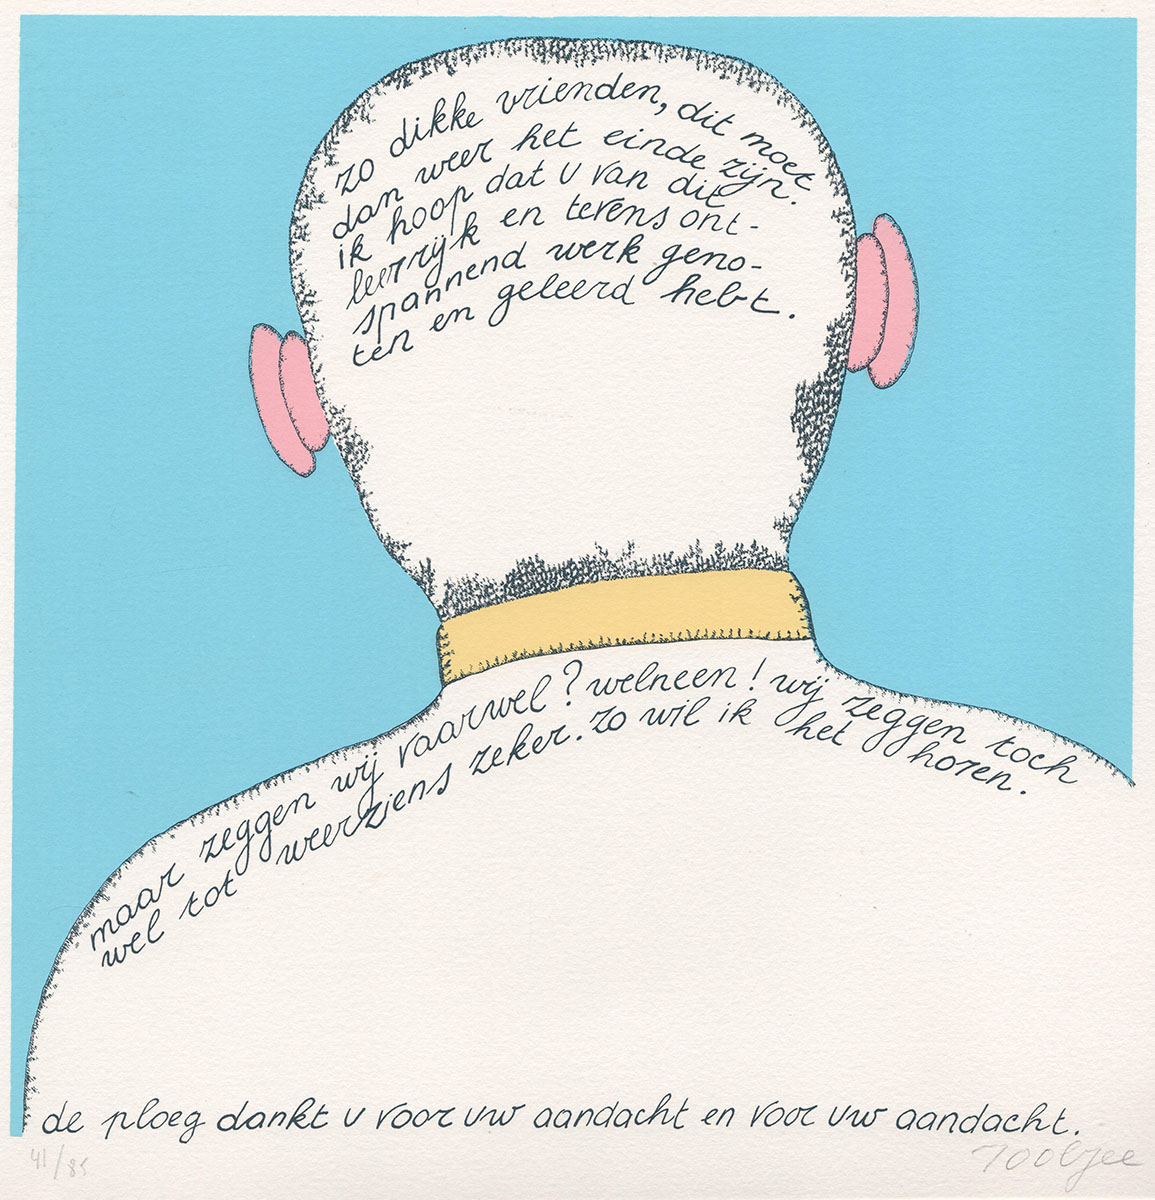 zo dikke vrienden, dit moet
dan weer het einde zijn.
ik hoop dat u van dit
leerrijk en tevens ont-
spannend werk geno-
ten en geleerd hebt.
maar zeggen wij vaarwel? welneen! wij zeggen toch
wel tot weerziens zeker. zo wil ik het horen.
de ploeg dankt u voor uw aandacht en voor uw aandacht.
41/85